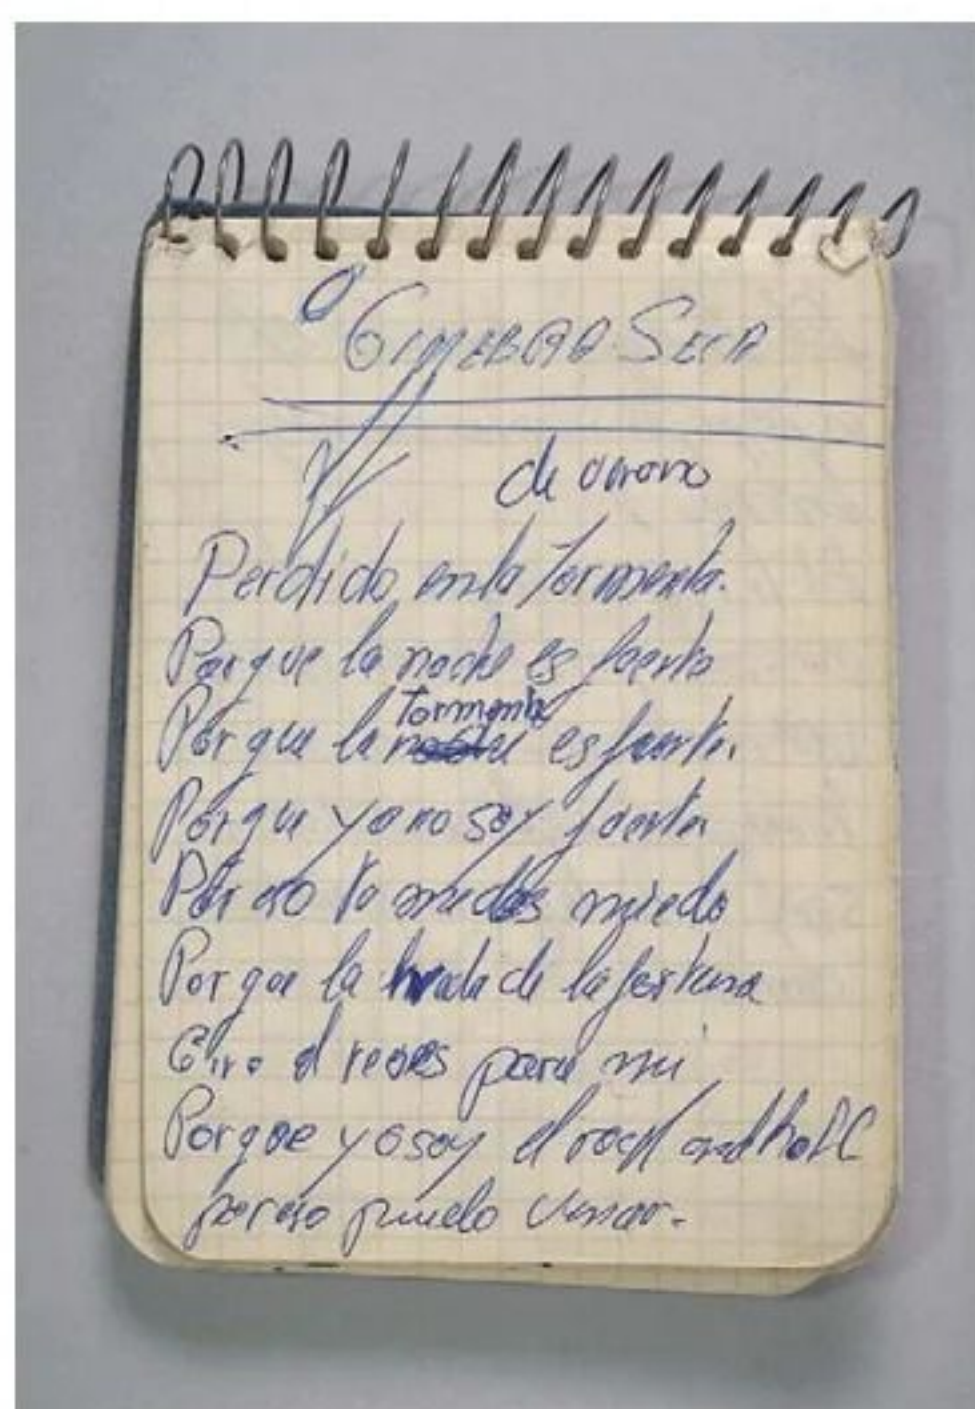 Ginebra Seca
de verano
Perdido en la Tormenta.
Porque la noche es fuerte
Porque la tormenta es fuerte.
Porque yo no soy fuerte
Por no miedo
Porque la de la fortuna
Gira al reves para mi
Porque yo soy el rock and roll
por eso puedo